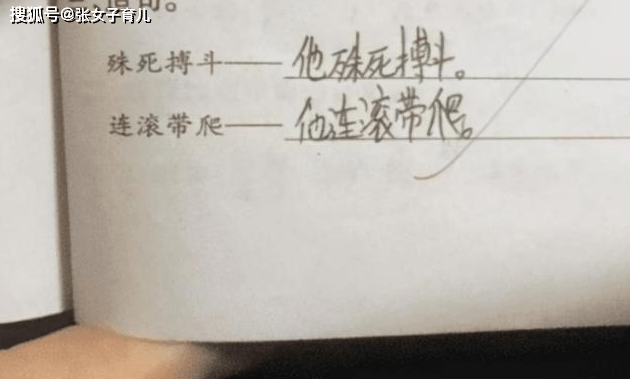 搜狐号@张女子育儿
造句。
殊死搏斗——他殊死搏斗。
连滚带爬——他连滚带爬。